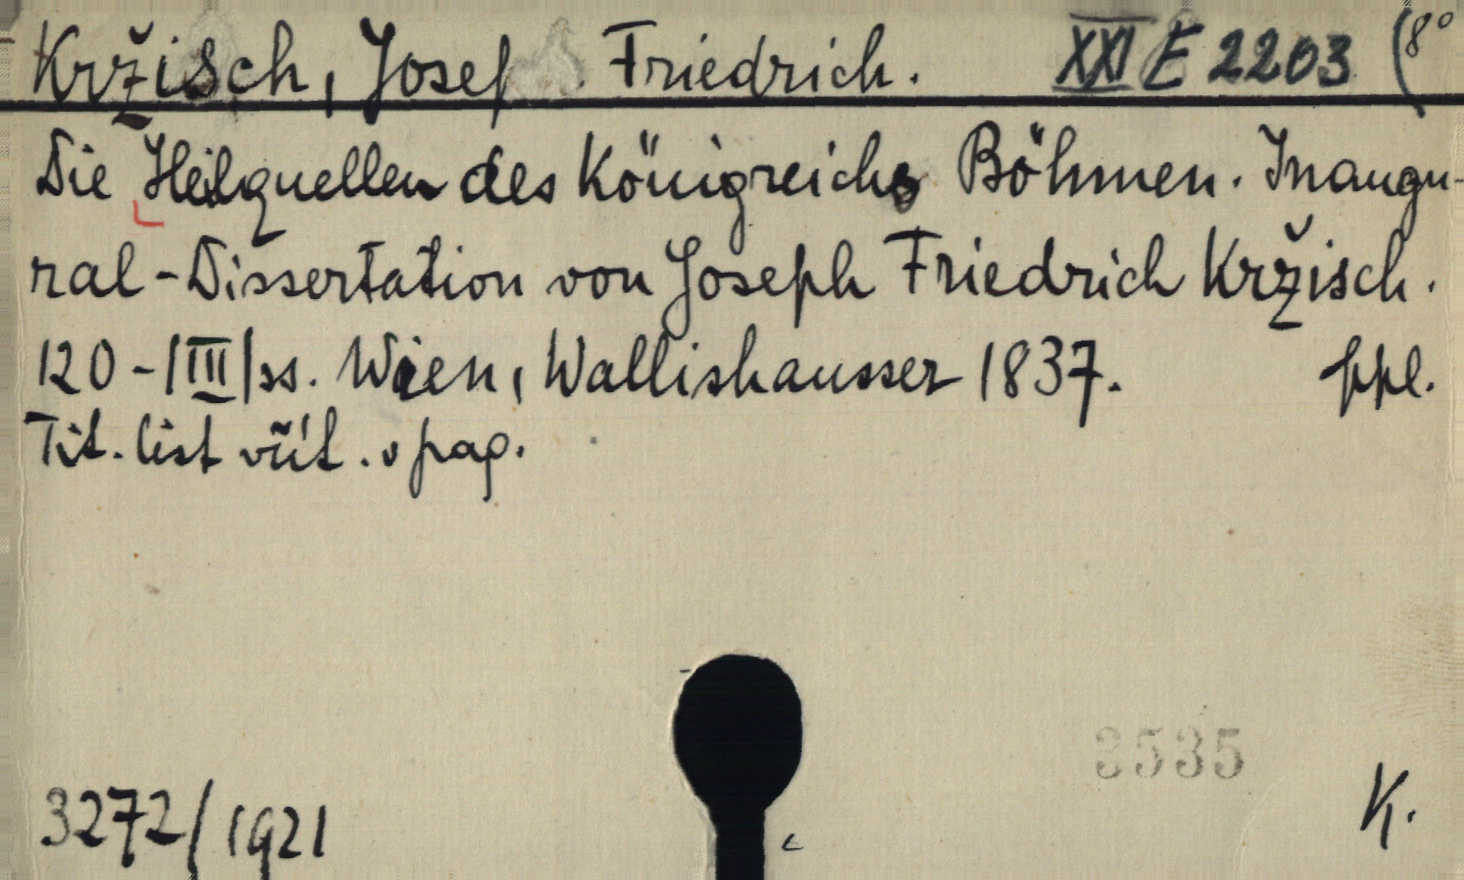 Kržisch, Josef Friedrich. XXI E 2203 (8°
Die Heilquellen des Königreichs Böhmen. Inaugu-
ral-Dissertation von Joseph Friedrich Kržisch.
120-|III|ss. Wien, Wallishausser 1837. ppl.
Tit. list v pag.
3535
3272/1921 K.